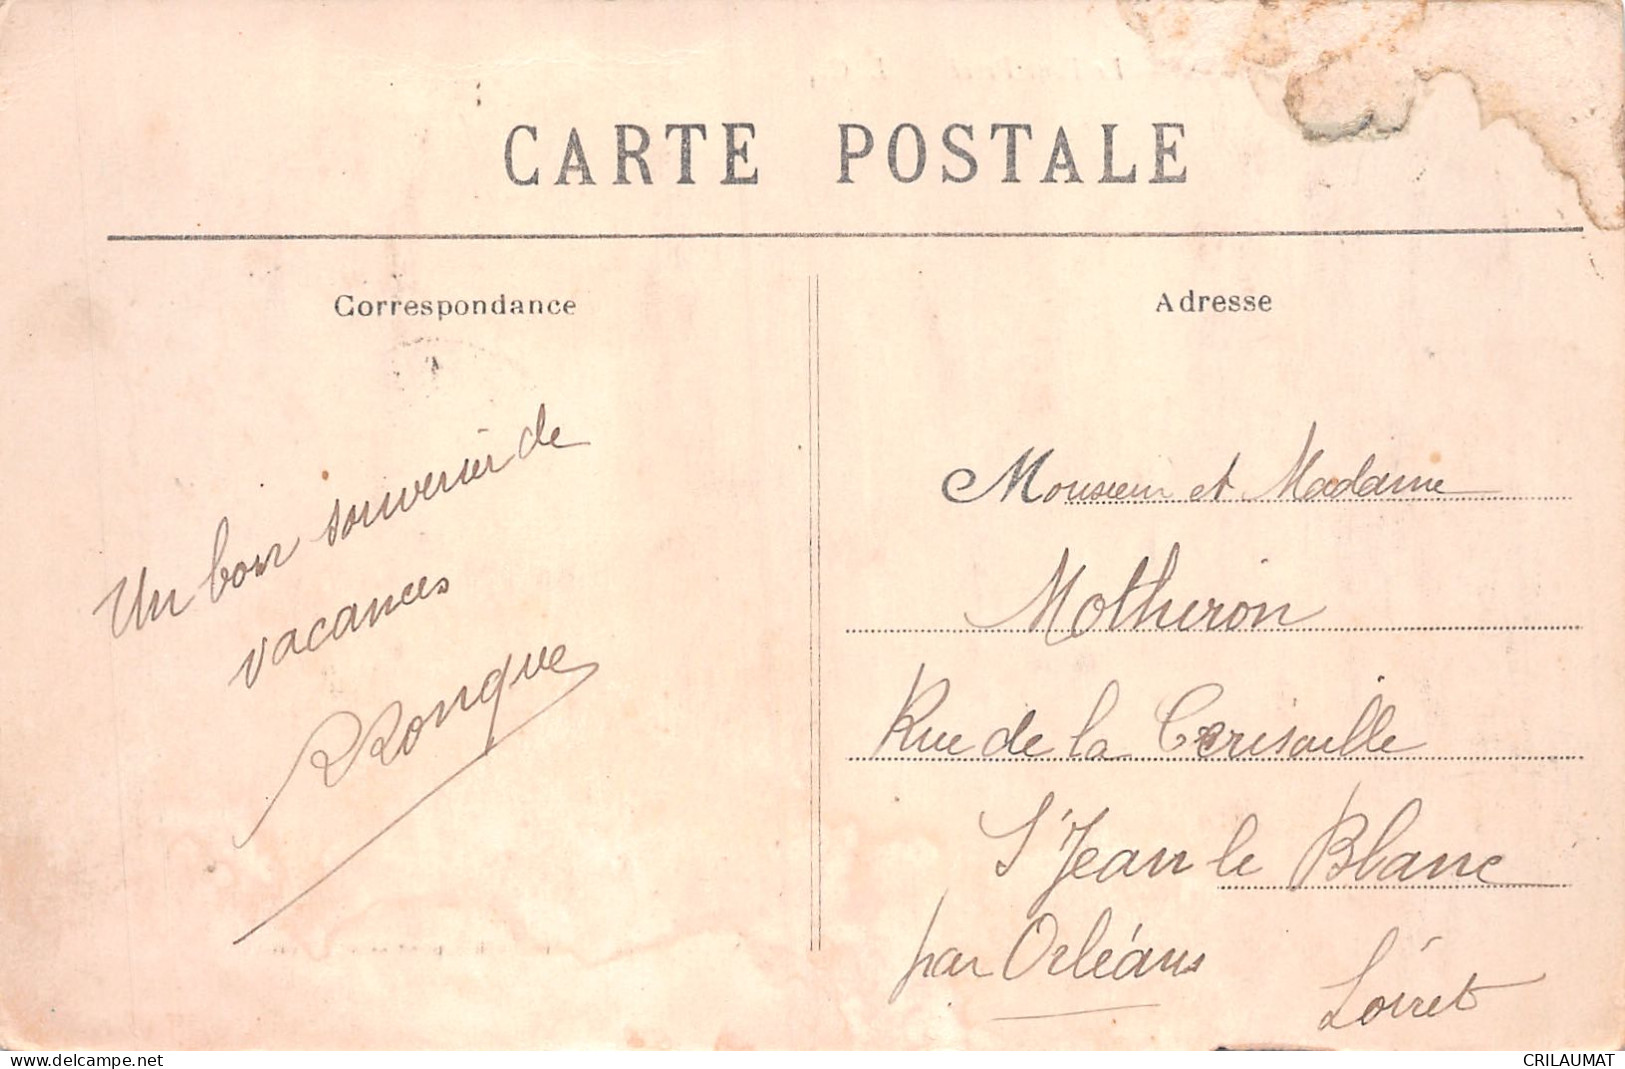 CARTE POSTALE
Correspondance
Adresse
Un bon souvenir de
vacances
Ronque
Monsieur et Madame
Motheron
Rue de la Cerisaille
St Jean le Blanc
par Orléans
Loiret
delcampe.net
CRILAUMAT